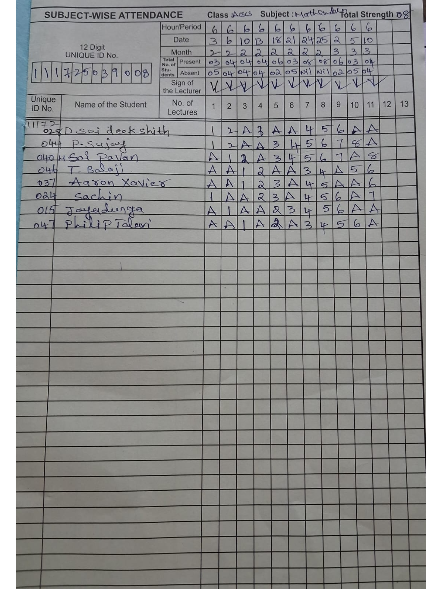 SUBJECT-WISE ATTENDANCE Class Subject : Total Strength 08
Hour/Period 6 6 6 6 6 6 6 6 6 6 6
12 Digit Date 3 6 10 13 18 21 24 25 2 5 10
UNIQUE ID No. Month 2 2 2 2 2 2 2 2 3 3 3
Total No. of Stu-dents Present 03 04 04 04 06 03 08 08 06 03 04
Absent 05 04 04 04 02 05 Nil Nil 02 05 04
Sign of the Lecturer
Unique ID No. Name of the Student No. of Lectures 1 2 3 4 5 6 7 8 9 10 11 12 13
D. Sai deekshith 1 2 A 3 A A 4 5 6 A A
044 P. Sujay 1 2 A A 3 4 5 6 7 8 A
040 Sai Pavan A 1 2 A 3 4 5 6 7 A 8
046 T. Balaji A A 1 2 A A 3 4 A 5 6
037 Aaron Xavier A A 1 2 3 A 4 5 A A 6
024 Sachin 1 A A 2 3 A 4 5 6 A 7
015 Jayadurga A 1 A A 2 3 4 5 6 A A
047 Philip A A 1 A 2 A 3 4 5 6 A